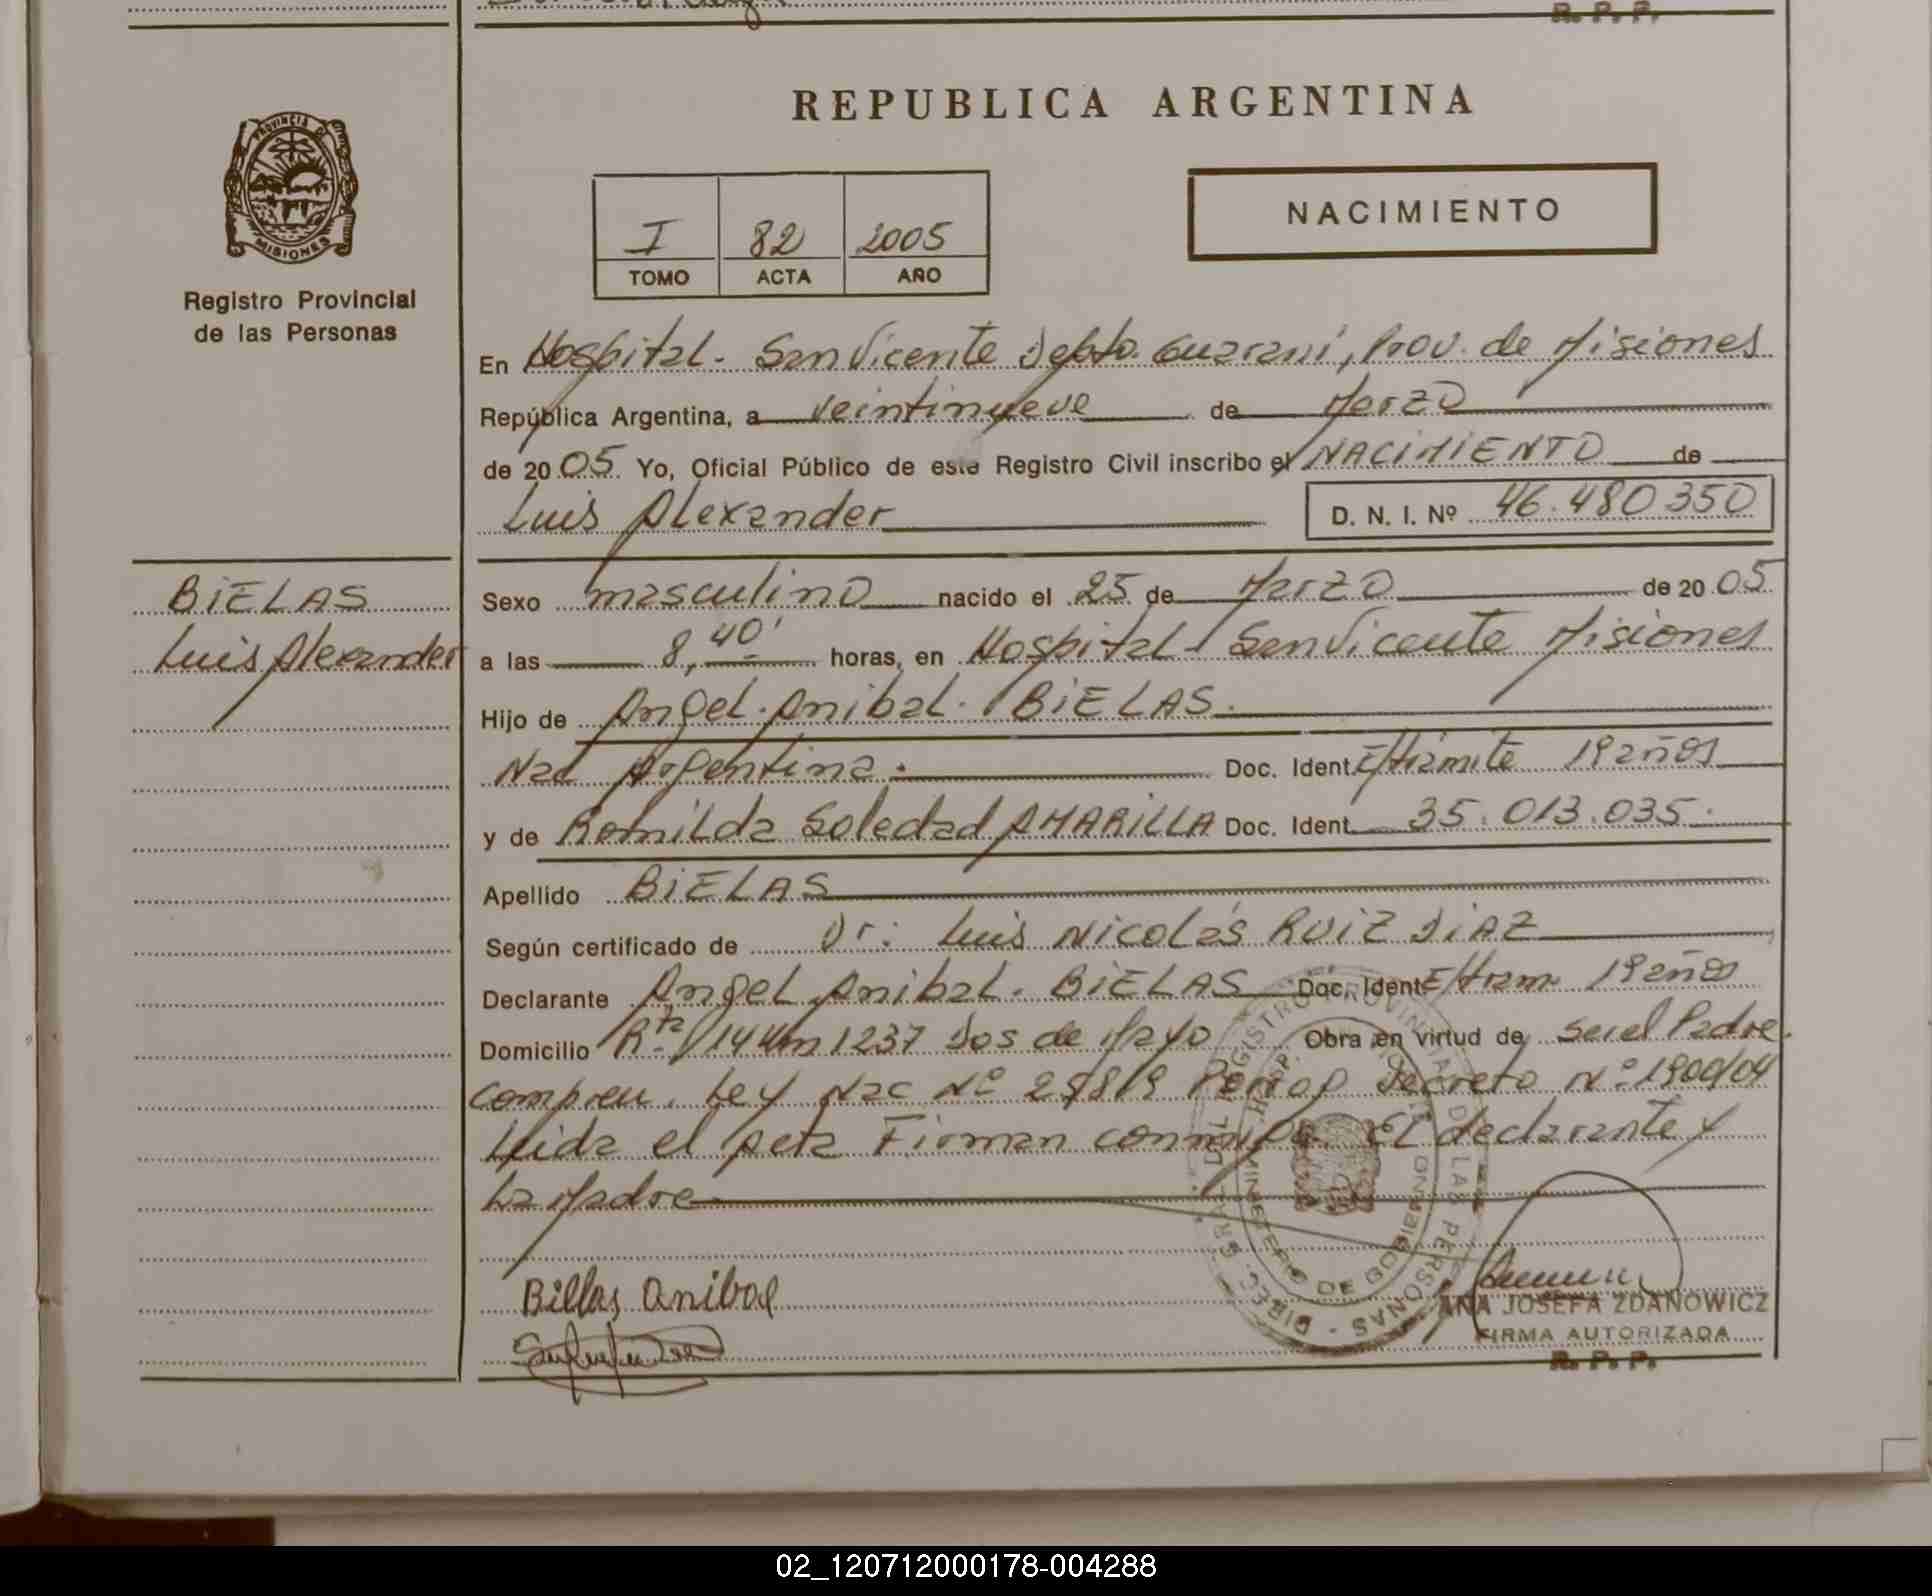 R. P. P.
REPUBLICA ARGENTINA
PROVINCIA D
MISIONES
Registro Provincial
de las Personas
I 82 2005
TOMO ACTA AÑO
NACIMIENTO
En Hospital - San Vicente Depto. Guaraní, Prov. de Misiones
República Argentina, a veintinueve de Marzo
de 2005 Yo, Oficial Público de este Registro Civil inscribo el NACIMIENTO de
Luis Alexander D. N. I. Nº 46.480350
BIELAS
Luis Alexander
Sexo masculino nacido el 25 de Marzo de 2005
a las 8,40' horas, en Hospital - San Vicente Misiones
Hijo de Angel Anibal BIELAS.
Nac Argentina. Doc. Ident. E/trámite 19 años
y de Romilda Soledad AMARILLA Doc. Ident. 35.013.035.
Apellido BIELAS
Según certificado de Dr: Luis Nicolás RUIZ DIAZ
Declarante Angel Anibal. BIELAS Doc. Ident E/tram. 19 años
Domicilio Rta 14 km 1237 Dos de Mayo Obra en virtud de ser el Padre.
compren. Ley Nac Nº 25819 Decreto Nº 1900/04
Leida el Acta Firman conmigo. El declarante y
La Madre
Billas Anibal
ANA JOSEFA ZDANOWICZ
FIRMA AUTORIZADA
R. P. P.
DIREC. GRAL. DEL REGISTRO PROVINCIAL DE LAS PERSONAS
MINISTERIO DE GOBIERNO
02_120712000178-004288